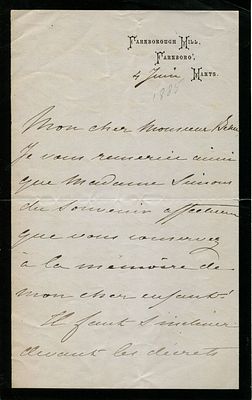 FARNBOROUGH HILL,
FARNBORO',
HANTS.
4 Juin
1885
Mon cher Monsieur
Je vous remercie ainsi
que Madame Simons
du souvenir affectueux
que vous conservez
à la mémoire de
mon cher enfant!
Il faut s'incliner
devant les décrets